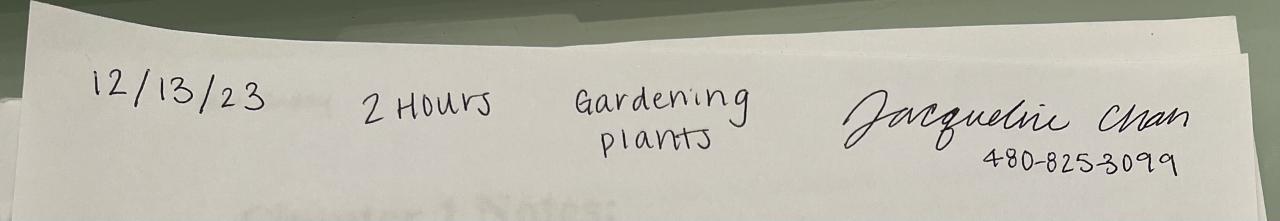 12/13/23 2 Hours Gardening Jacqueline Chan
plants 480-825-3099
Chapter 1 Notes: